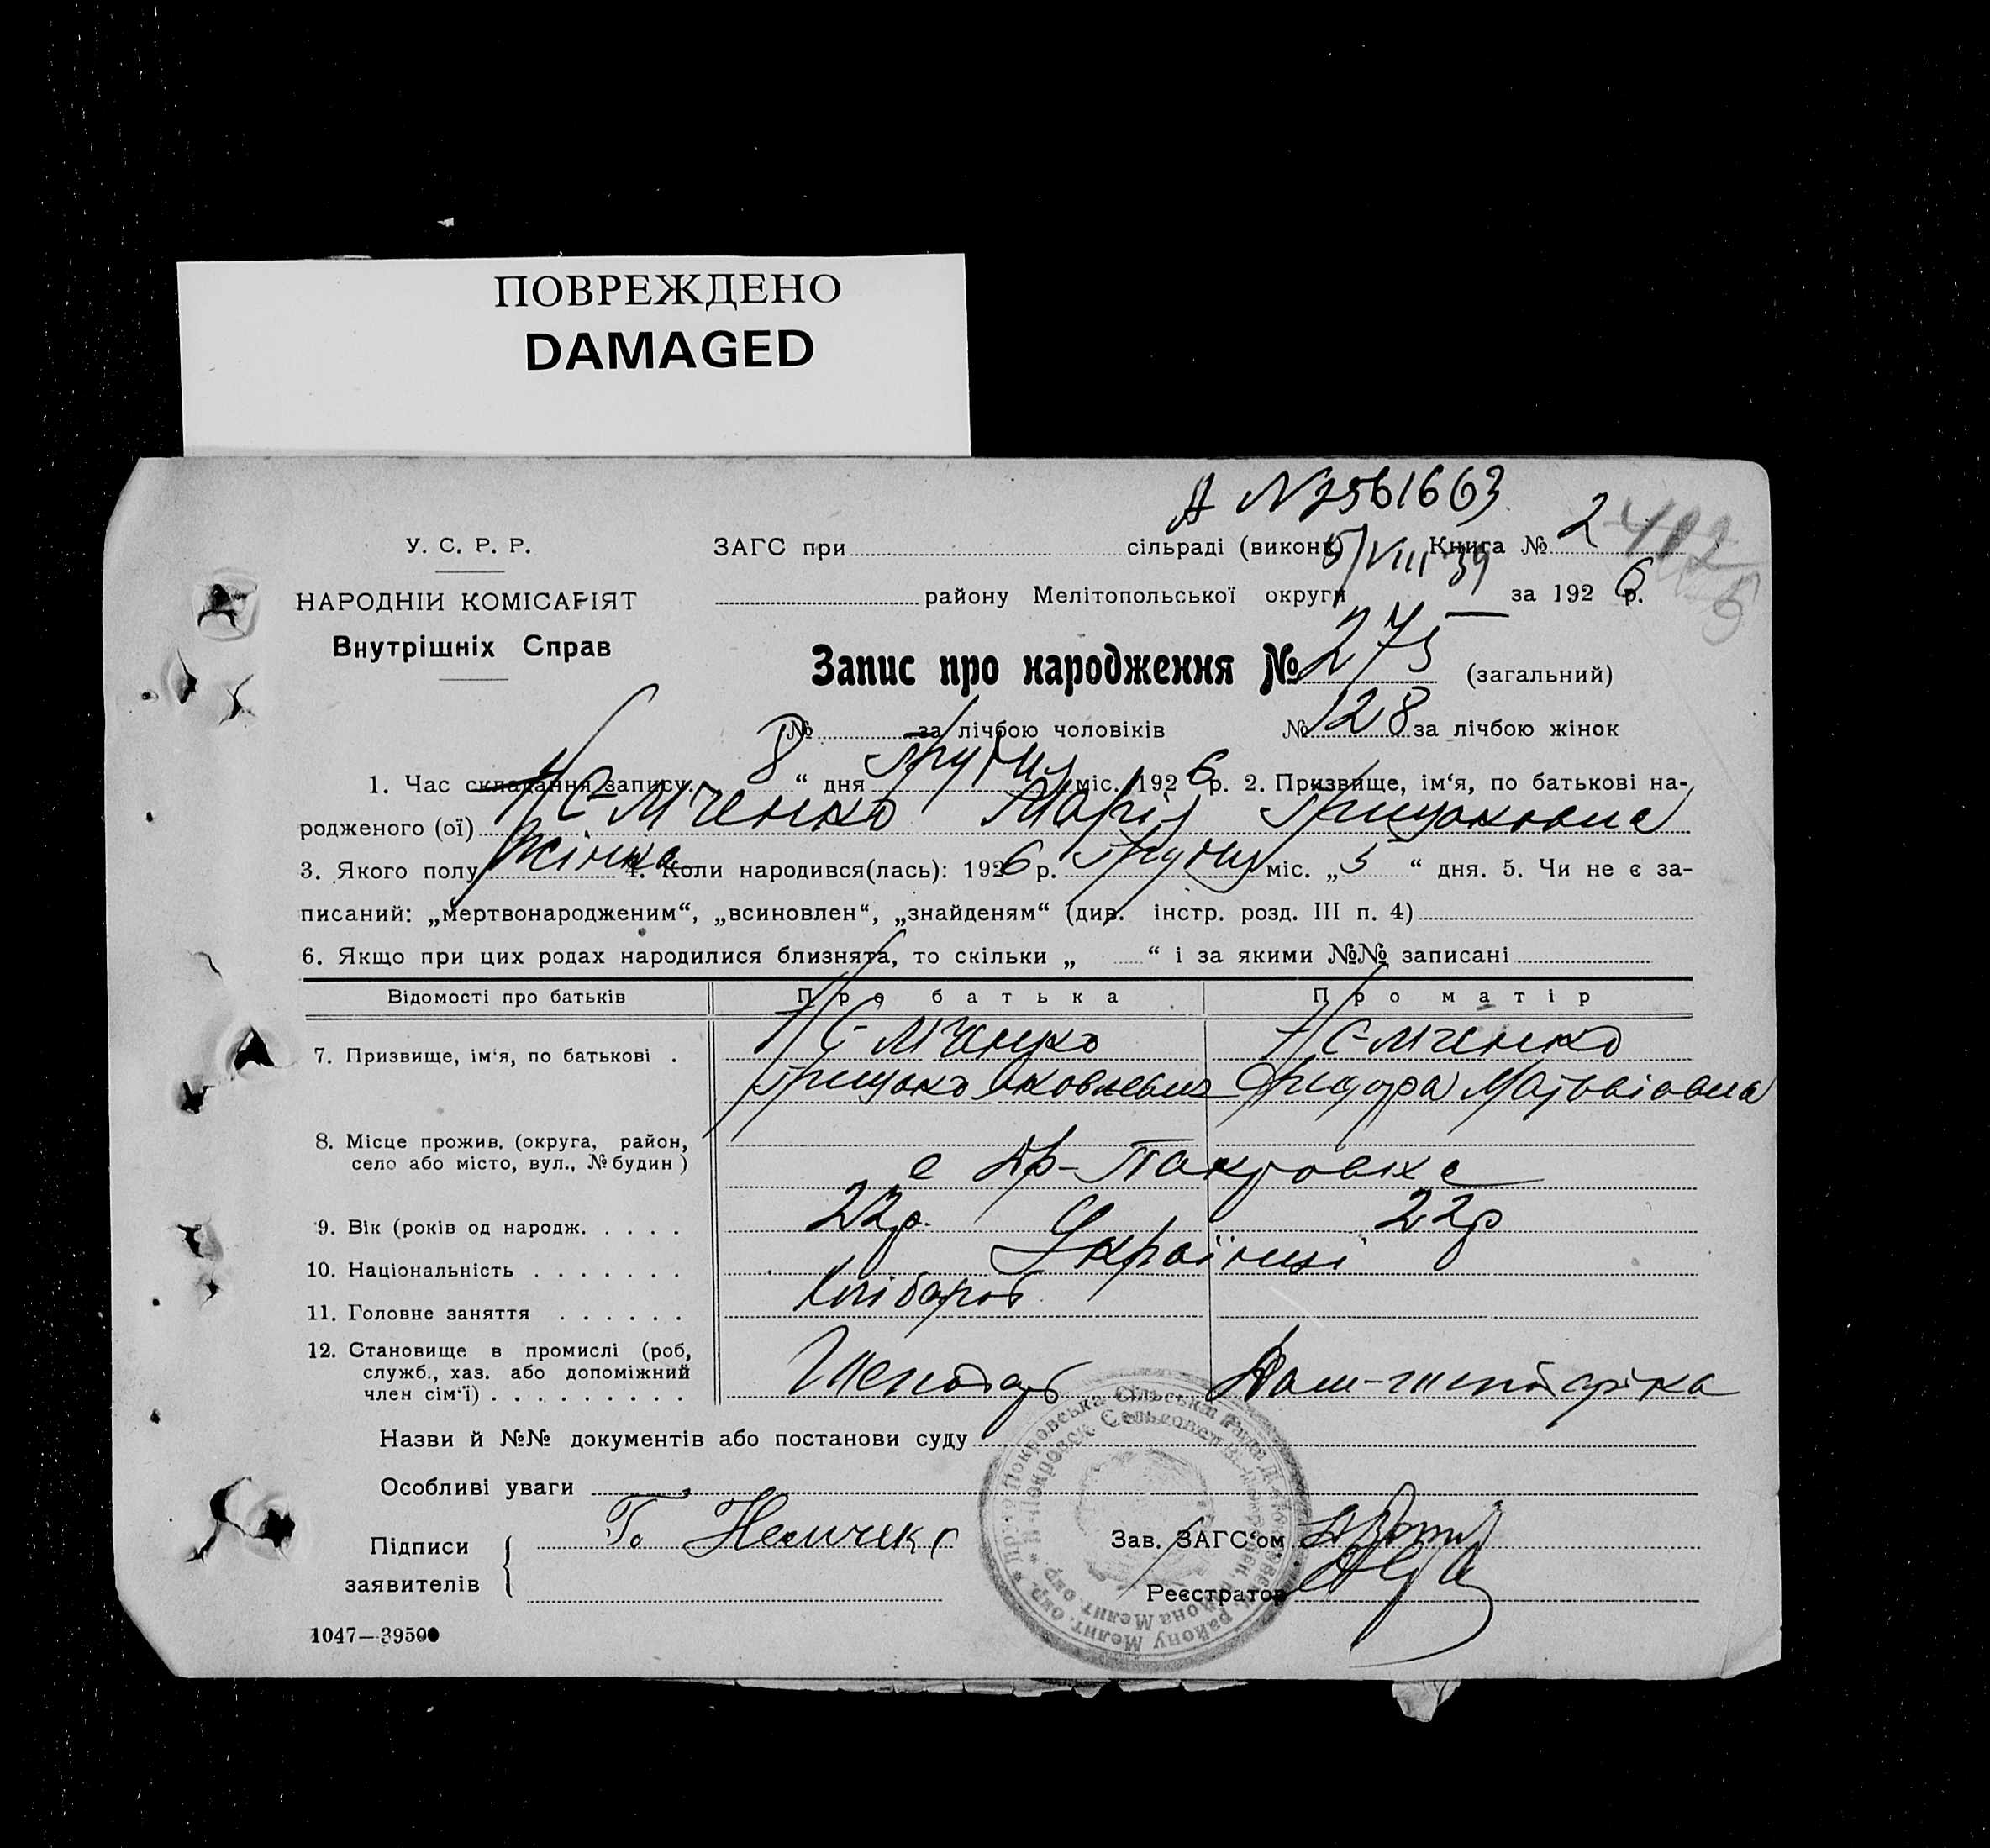 ПОВРЕЖДЕНО
DAMAGED
А № 7561663
5/VIII 39
У. С. Р. Р.
НАРОДНІЙ КОМІСАРІЯТ
Внутрішніх Справ
ЗАГС при сільраді (виконк) Книга № 2
району Мелітопольської округи за 1926 р.
402
Запис про народження № 275 (загальний)
№ за лічбою чоловіків № 128 за лічбою жінок
1. Час складання запису. 8 “ дня Грудня міс. 1926 р. 2. Призвище, ім‘я, по батькові на-
родженого (ої) Немченко Марія Грицьковна
3. Якого полу Жінка 4. Коли народився(лась): 1926 р. Грудня міс. „5“ дня. 5. Чи не є за-
писаний: „мертвонародженим“, „всиновлен“, „знайденям“ (див. інстр. розд. III п. 4)
6. Якщо при цих родах народилися близнята, то скільки „ “ і за якими №№ записані
Відомості про батьків Про батька Про матір
7. Призвище, ім‘я, по батькові . Немченко Немченко
Грицько Яковлевич Матвіовна
8. Місце прожив. (округа, район,
село або місто, вул., № будин ) с Др-Покровка
9. Вік (років од народж. . . . . 22р. 22р
10. Національність . . . . . . . Українці
11. Головне заняття . . . . . . Хлібороб
12. Становище в промислі (роб,
служб., хаз. або допоміжний
член сім‘ї) . . . . . . . . .
Назви й №№ документів або постанови суду
Особливі уваги
Підписи
заявителів Г. Немчек
Зав. ЗАГС‘ом
Реєстратор
1047—39500